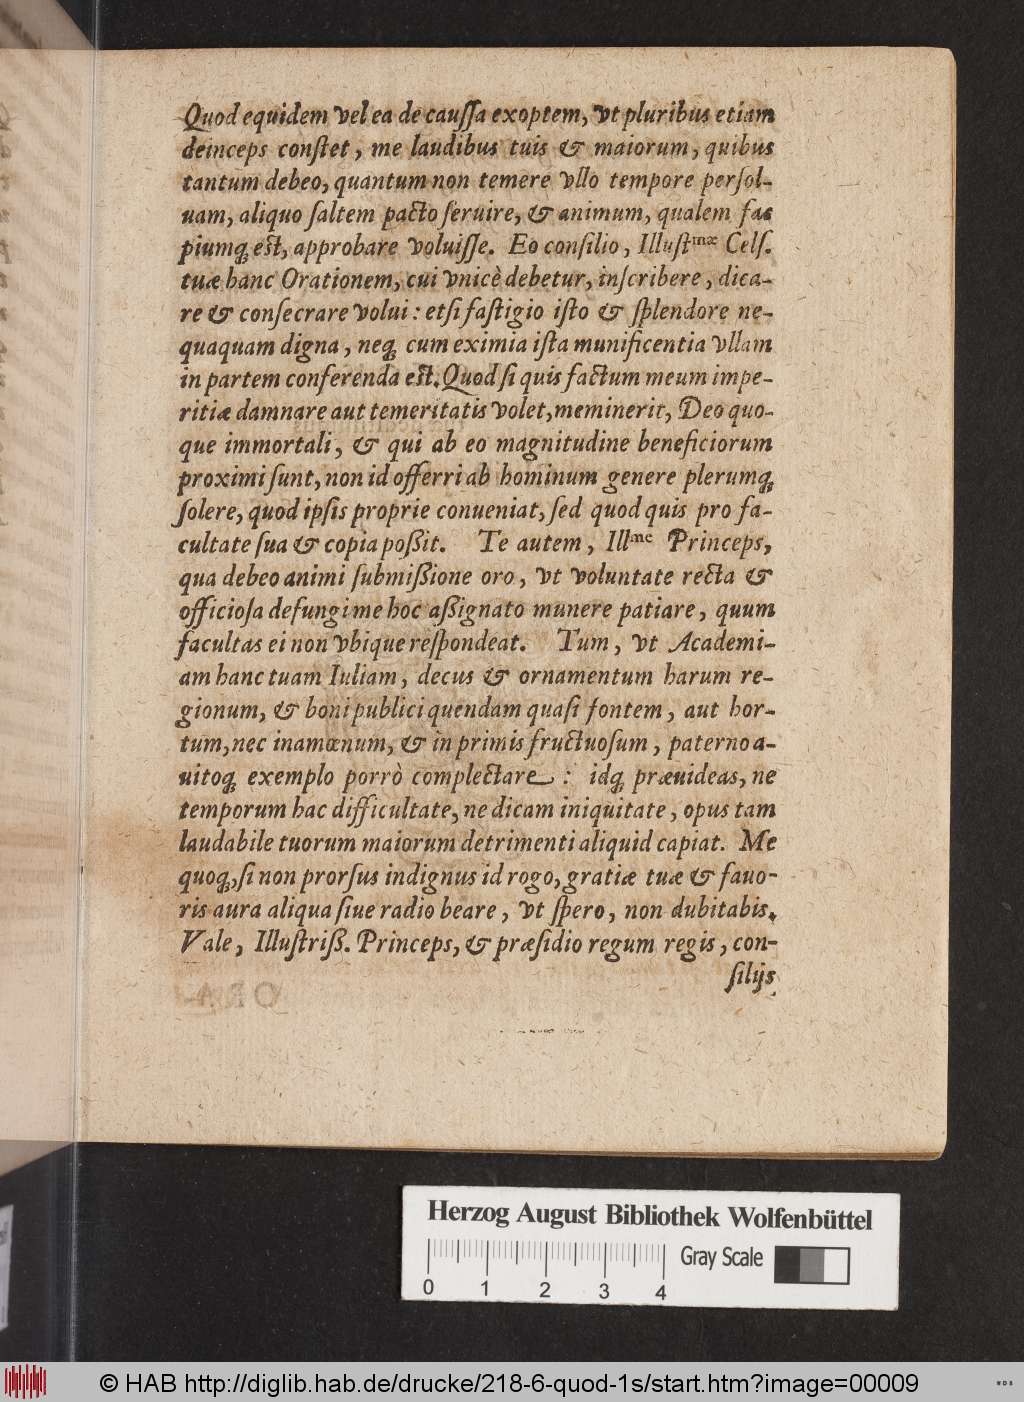 Quod equidem vel ea de cauſſa exoptem, vt pluribus etiam
deinceps conſtet, me laudibus tuis & maiorum, quibus
tantum debeo, quantum non temere vllo tempore perſol-
uam, aliquo ſaltem pacto ſeruire, & animum, qualem fas
piumq́; eſt, approbare voluiſſe. Eo conſilio, Illuſtᵐᵃᵉ Celſ.
tuæ hanc Orationem, cui vnicè debetur, inſcribere, dica-
re & conſecrare volui: etſi faſtigio iſto & ſplendore ne-
quaquam digna, neq́; cum eximia iſta munificentia vllam
in partem conferenda eſt. Quod ſi quis factum meum impe-
ritiæ damnare aut temeritatis volet, meminerit, Deo quo-
que immortali, & qui ab eo magnitudine beneficiorum
proximi ſunt, non id offerri ab hominum genere plerumq́;
ſolere, quod ipſis proprie conueniat, ſed quod quis pro fa-
cultate ſua & copia poßit. Te autem, Illᵐᵉ Princeps,
qua debeo animi ſubmißione oro, vt voluntate recta &
officioſa defungi me hoc aßignato munere patiare, quum
facultas ei non vbique reſpondeat. Tum, vt Academi-
am hanc tuam Iuliam, decus & ornamentum harum re-
gionum, & boni publici quendam quaſi fontem, aut hor-
tum, nec inamœnum, & in primis fructuoſum, paterno a-
uitoq́; exemplo porrò complectare: idq́; præuideas, ne
temporum hac difficultate, ne dicam iniquitate, opus tam
laudabile tuorum maiorum detrimenti aliquid capiat. Me
quoq́;, ſi non prorſus indignus id rogo, gratiæ tuæ & fauo-
ris aura aliqua ſiue radio beare, vt ſpero, non dubitabis.
Vale, Illuſtriß. Princeps, & præſidio regum regis, con-
ſilijs
Herzog August Bibliothek Wolfenbüttel
Gray Scale
0 1 2 3 4
© HAB http://diglib.hab.de/drucke/218-6-quod-1s/start.htm?image=00009